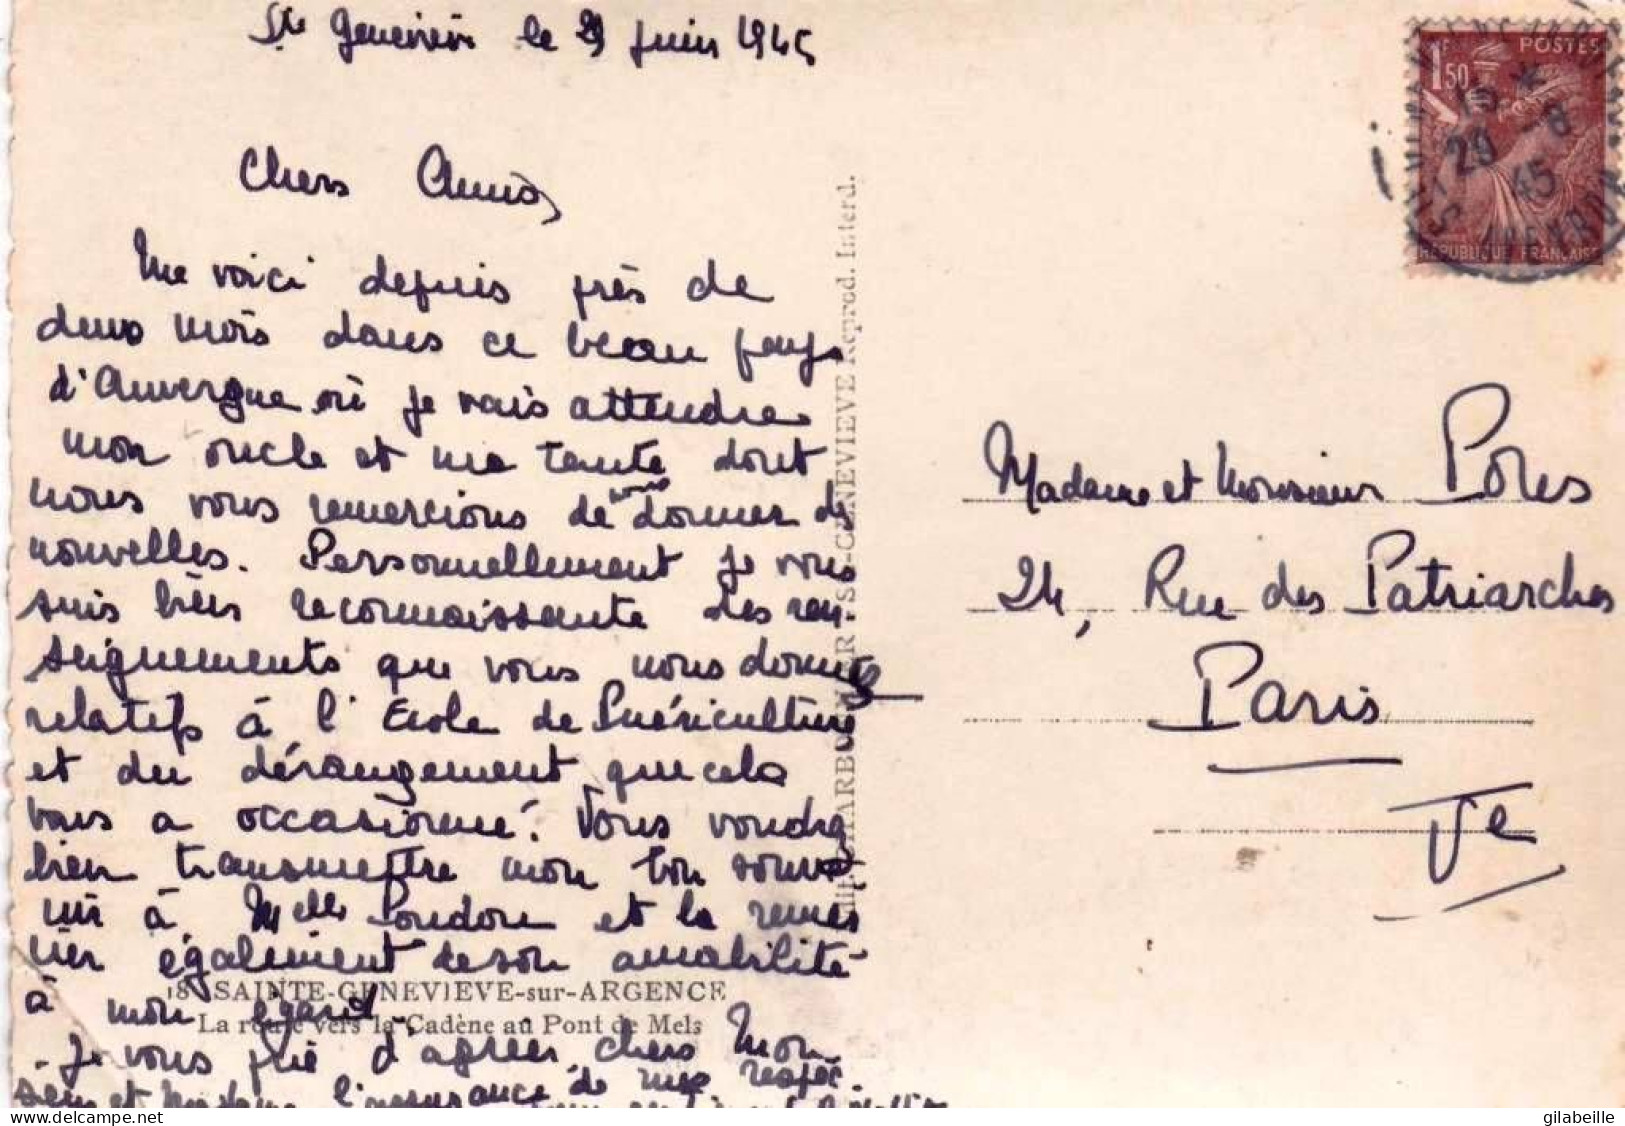 Ste Geneviève le 29 Juin 1945
Chers Amis,
Me voici depuis près de
deux mois dans ce beau pays
d'Auvergne où je vais attendre
mon oncle et ma tante dont
nous vous remercions de nous donner de
nouvelles. Personnellement je vous
suis très reconnaissante des ren-
seignements que vous nous donnez
relatifs à l'Ecole de Puériculture
et du dérangement que cela
vous a occasionné. Vous voudrez
bien transmettre mon bon souve
nir à Melle Poudou et la remer
cier également de son amabilité
à mon égard.
Je vous prie d'agréer, chers Mon
sieur et Madame l'assurance de mes respec-
18 SAINTE-GENEVIEVE-sur-ARGENCE
La route vers la Cadène au Pont de Mels
CHARBONNIER STE-GENEVIEVE Reprod. Interd.
1F50 POSTES
REPUBLIQUE FRANÇAISE
15 *
29 -8
45
AVEYRON
Madame et Monsieur Pores
24, Rue des Patriarches
Paris
Ve
gilabeille